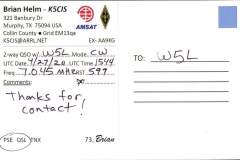 Brian Helm - K5CIS
321 Banbury Dr
Murphy, TX 75094
Collin County ● Grid EM13qa
K5CIS@ARRL.NET EX- AA9XG
AMSAT
2-way QSO w/ W5L Mode CW
UTC Date 4/27/20 UTC Time 1544
Freq 7.045 MHz RST 599
Comments:
Thanks for
contact!
PSE QSL TNX
73, Brian
TO: W5L